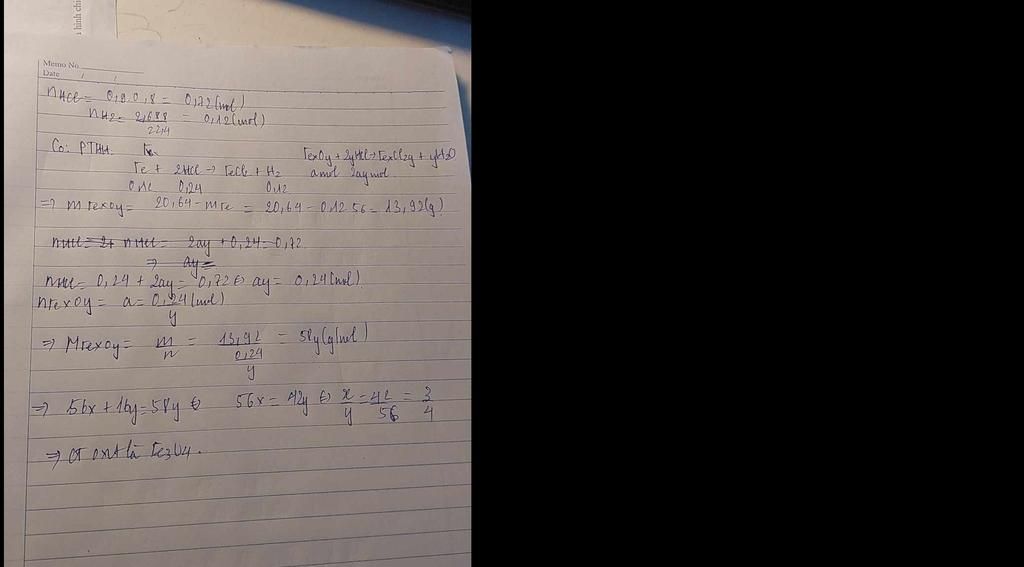 hình chi
Memo No
Date / /
nHCl = 0,9.0,8 = 0,72(mol)
nH2 = 2,688/22,4 = 0,12(mol)
Có: PTHH: Fe
FexOy + 2yHCl → FexCl2y + yH2O
Fe + 2HCl → FeCl2 + H2 a mol 2ay mol
0,12 0,24 0,12
=> mFexOy = 20,64 - mFe = 20,64 - 0,12.56 = 13,92(g)
nHCl = 2+ nHCl = 2ay + 0,24 = 0,72
=> ay =
nHCl = 0,24 + 2ay = 0,72 <=> ay = 0,24(mol)
nFexOy = a = 0,24/y (mol)
=> MFexOy = m/n = 13,92/(0,24/y) = 58y(g/mol)
=> 56x + 16y = 58y <=> 56x = 42y <=> x/y = 42/56 = 3/4
=> CT oxit là Fe3O4.